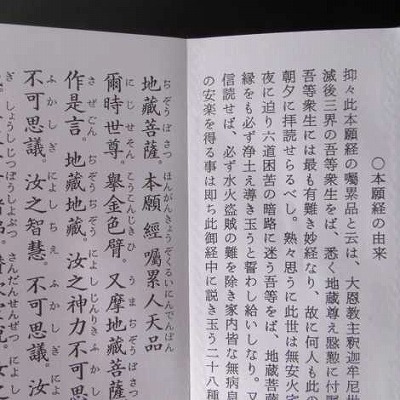 〇本願経の由来
抑々此本願経の囑累品と云は、大恩教主釈迦牟尼世
滅後三界の吾等衆生をば、悉く地蔵尊え慇懃に付嘱
吾等衆生には最も有難き妙経なり、故に何人も此の
朝夕に拝読せらるべし。熟々思うに此世は無安火宅
夜に迫り六道困苦の暗路に迷う吾等をば、地蔵菩薩
縁をも必ず浄土え導き玉うと誓わし給いしなり。又
信読せば、必ず水火盗賊の難を除き家内皆な無病息
の安楽を得る事は即ち此御経中に説き玉う二十八種
ぢぞうぼさつ ほんがんきょうぞくるいにんでんぼん
地藏菩薩。本願經囑累人天品
にじせそん こうこんじきひ うまぢぞうぼさつ
爾時世尊。擧金色臂。又摩地藏菩薩
さぜごん ぢぞうぢぞう によしじんりきふかし
作是言。地藏地藏。汝之神力不可思
ふかしぎ によしちえ ふかしぎ によ
不可思議。汝之智慧。不可思議。汝